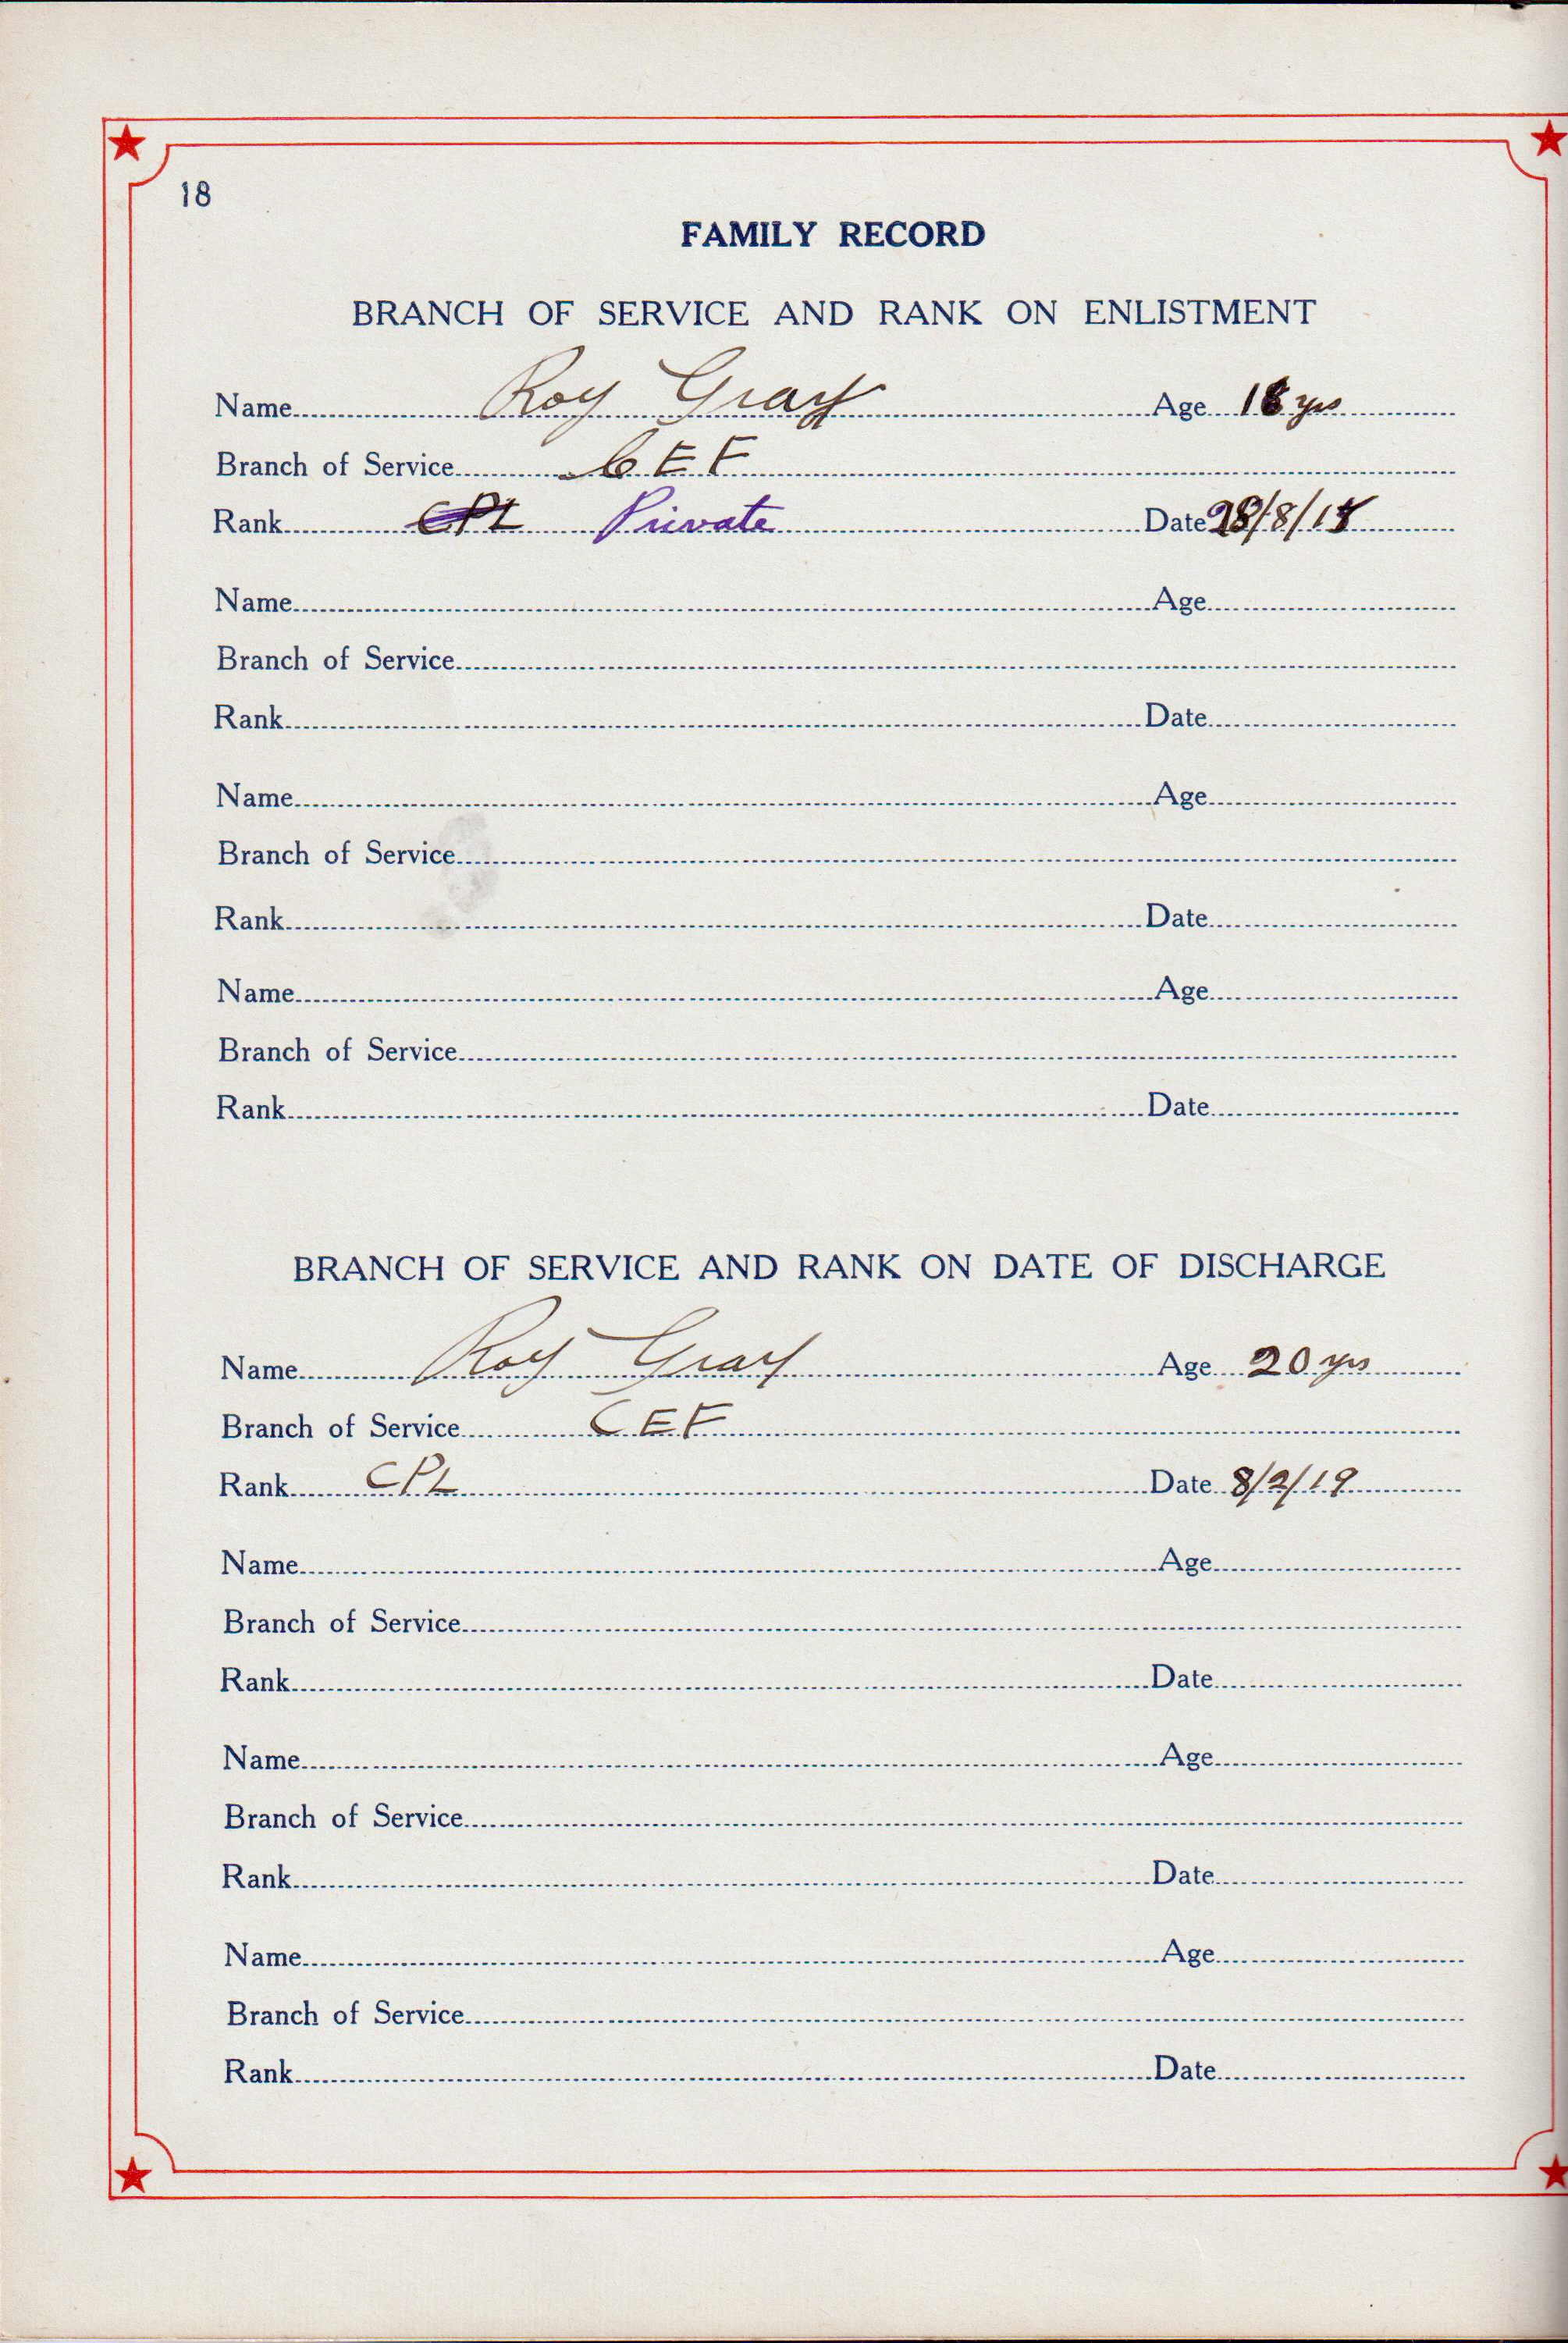 18
FAMILY RECORD
BRANCH OF SERVICE AND RANK ON ENLISTMENT
Name Roy Gray Age 18 yrs
Branch of Service C E F
Rank CPL Private Date 28/8/18
Name Age
Branch of Service
Rank Date
Name Age
Branch of Service
Rank Date
Name Age
Branch of Service
Rank Date
BRANCH OF SERVICE AND RANK ON DATE OF DISCHARGE
Name Roy Gray Age 20 yrs
Branch of Service C E F
Rank CPL Date 8/2/19
Name Age
Branch of Service
Rank Date
Name Age
Branch of Service
Rank Date
Name Age
Branch of Service
Rank Date